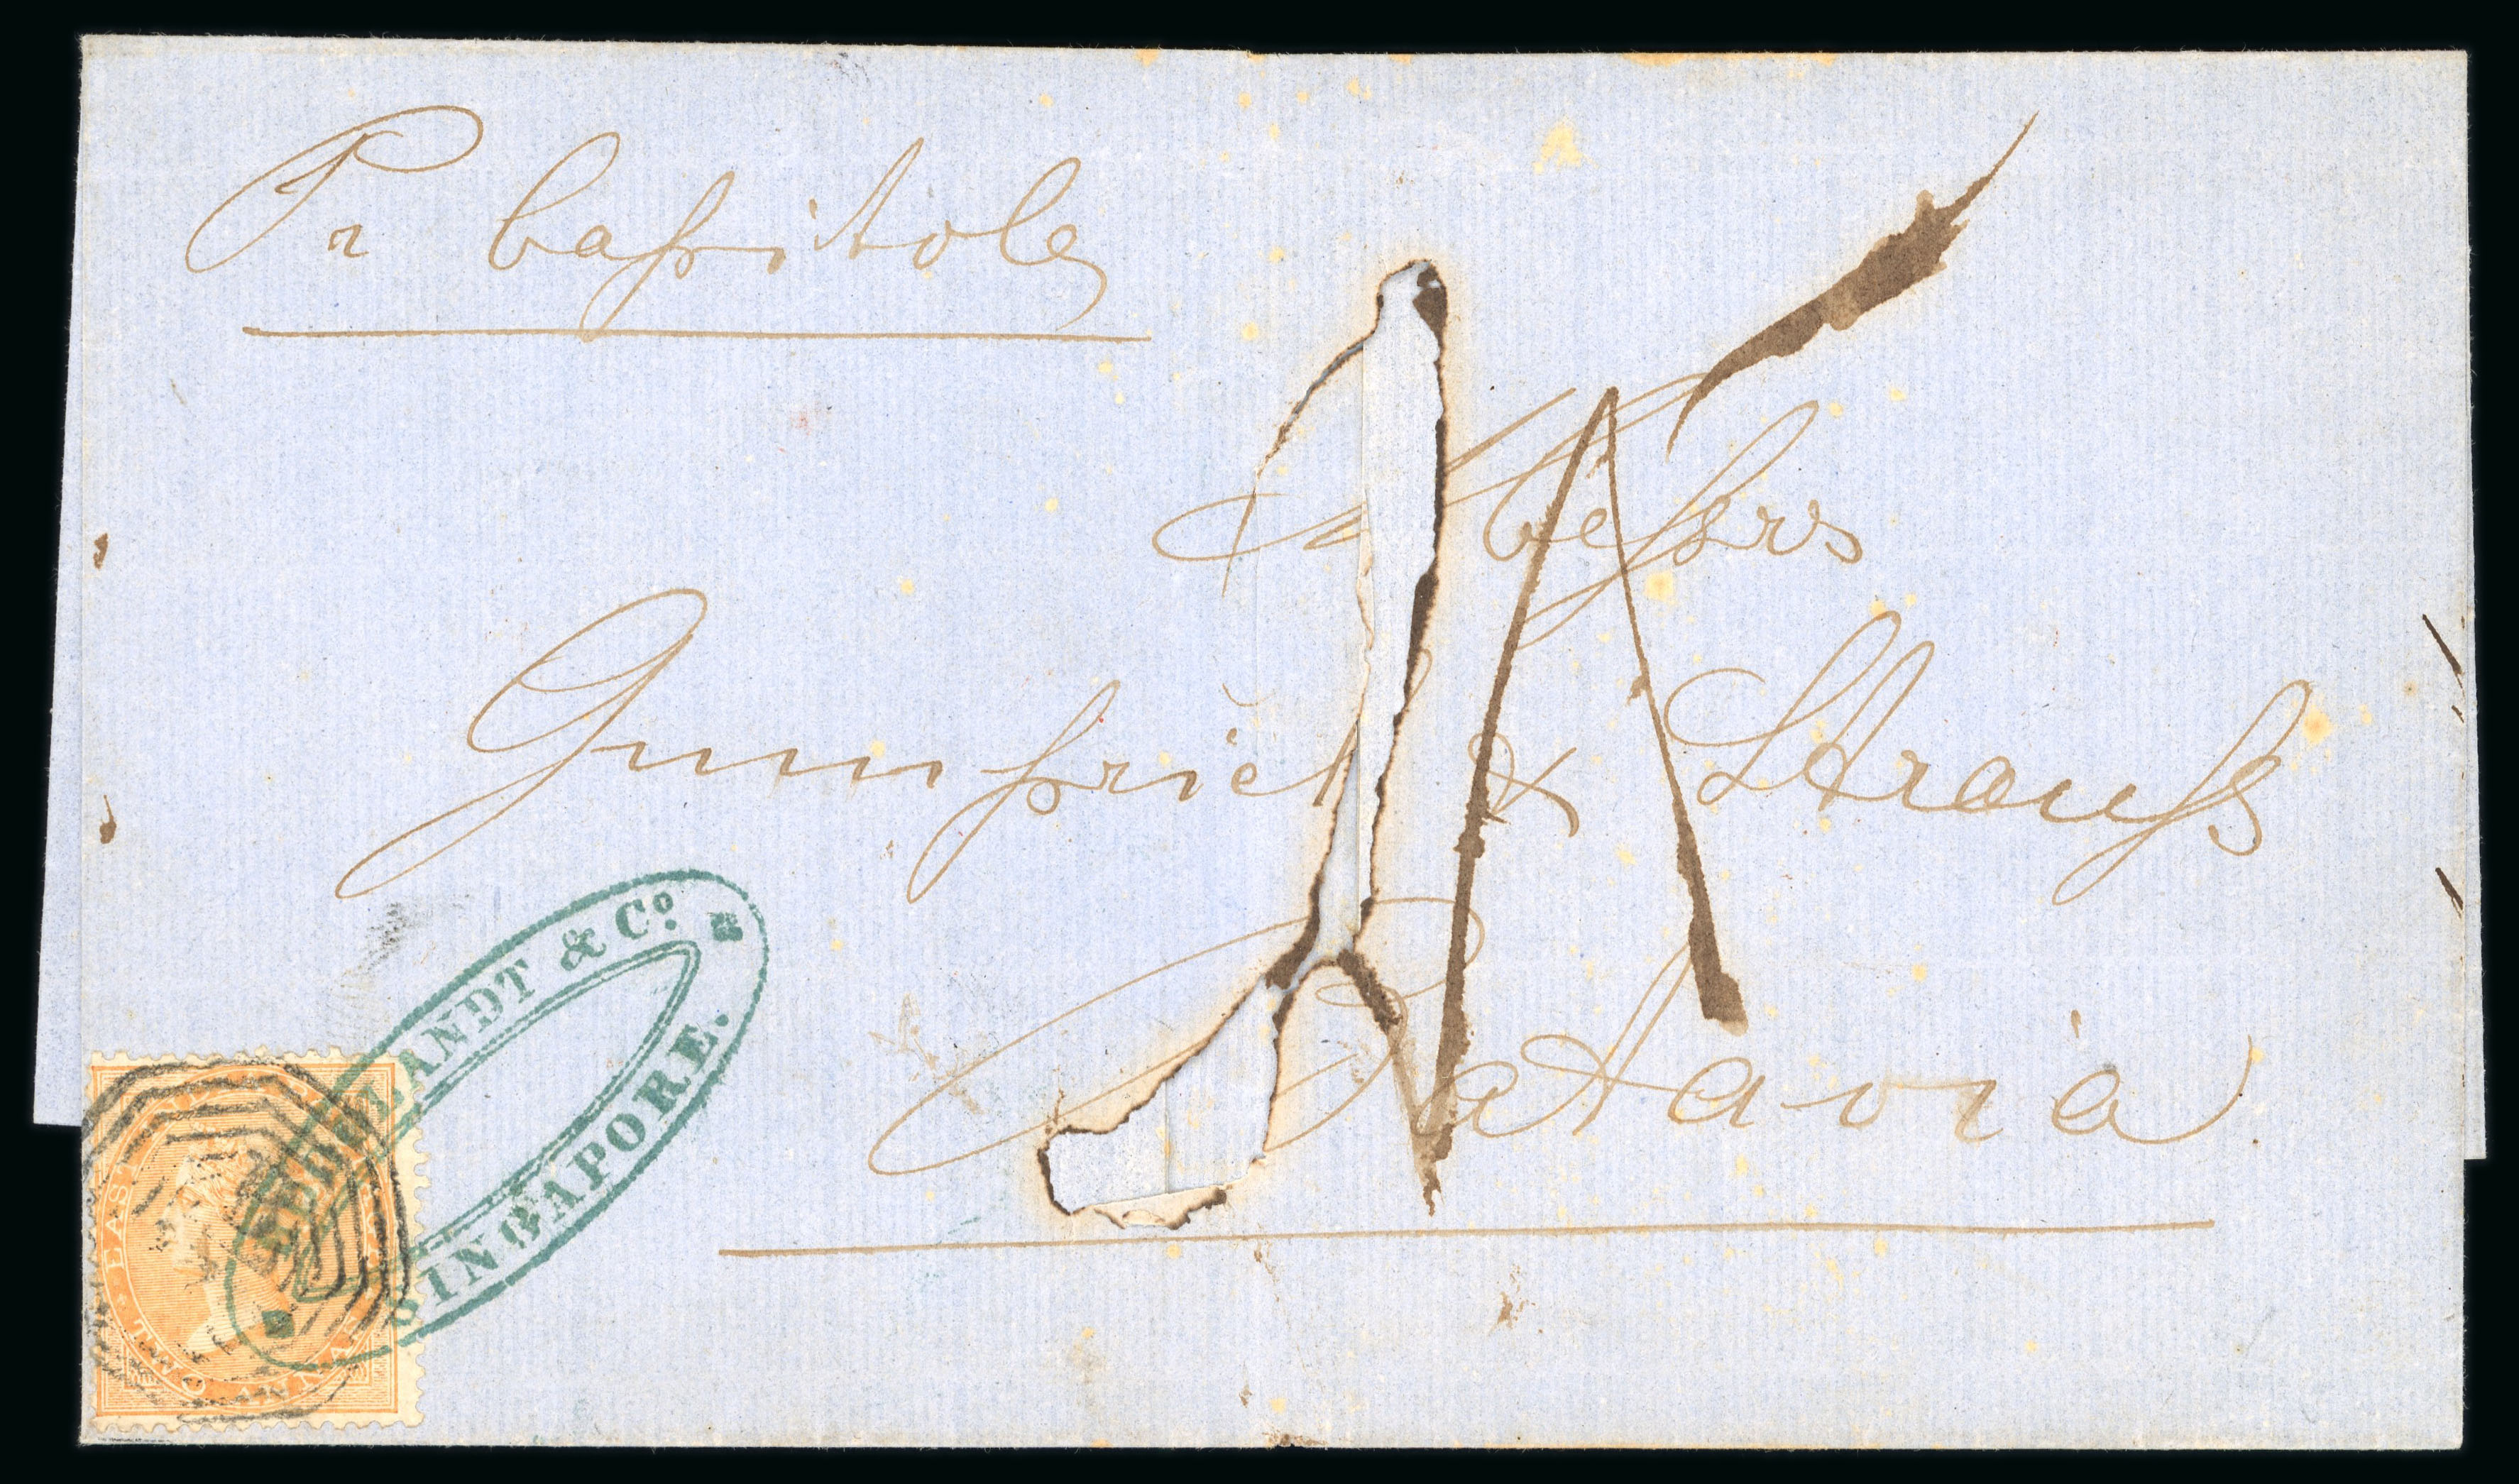 Pr Cassitole
Messrs
Gumprich & Strauss
Batavia
BEHN LANDT & Co.
SINGAPORE.
EAST INDIA
TWO ANNAS